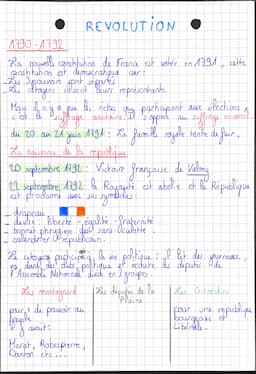 REVOLUTION
1790-1792
La nouvelle constitution de France est votée en 1791, cette
constitution est démocratique car:
- Les pouvoirs sont séparés
- Les citoyens élisent leurs représentants.
Mais il n'y a que les riches qui participent aux élections,
c'est le suffrage censitaire. Il s'oppose au suffrage universel.
du 20 au 21 juin 1791: La famille royale tente de fuir.
La naissance de la république
20 septembre 1792: Victoire française de Valmy
22 septembre 1792: la Royauté est abolie et la République
est proclamée avec ses symboles:
- drapeau
- devise: liberté - égalité - fraternité
- bonnet phrygien des sans-culotte
- calendrier républicain.
Les citoyens participent à la vie politique: lit des journaux,
va dans des clubs politique et écoute de députés de
l'Assemblé Nationale divisé en 3 groupes.
Les montagnard
Les députés de la
Plaine
Les Girondins
pour de pouvoir au
peuple
il y avait:
Marat, Robespierre,
Danton etc...
pour une république
bourgeoise et
Libérale.